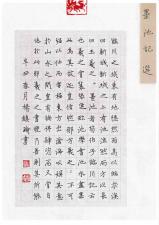 墨池記選
臨川之城東有地隱然而高以臨於溪
曰新城新城之上有池窪然而方以長
曰王羲之之墨池者荀伯子臨川記云
也羲之嘗慕張芝臨池學書池水盡黑
此為其故跡豈信然邪方羲之之不可
強以仕而嘗極東方出滄海以娛其意
於山水之間豈有徜徉肆恣而又嘗自
休於此邪羲之之書晚乃善則其所能
春月楊 書